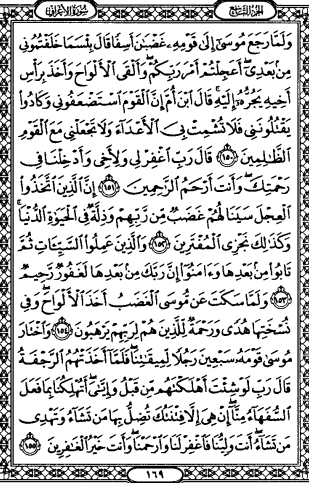 الجزء التاسع
سورة الأعراف
وَلَمَّا رَجَعَ مُوسَىٰٓ إِلَىٰ قَوْمِهِۦ غَضْبَٰنَ أَسِفًا قَالَ بِئْسَمَا خَلَفْتُمُونِى
مِنۢ بَعْدِىٓ أَعَجِلْتُمْ أَمْرَ رَبِّكُمْ وَأَلْقَى ٱلْأَلْوَاحَ وَأَخَذَ بِرَأْسِ
أَخِيهِ يَجُرُّهُۥٓ إِلَيْهِ قَالَ ٱبْنَ أُمَّ إِنَّ ٱلْقَوْمَ ٱسْتَضْعَفُونِى وَكَادُوا۟
يَقْتُلُونَنِى فَلَا تُشْمِتْ بِىَ ٱلْأَعْدَآءَ وَلَا تَجْعَلْنِى مَعَ ٱلْقَوْمِ
ٱلظَّٰلِمِينَ ١٥٠ قَالَ رَبِّ ٱغْفِرْ لِى وَلِأَخِى وَأَدْخِلْنَا فِى
رَحْمَتِكَ وَأَنتَ أَرْحَمُ ٱلرَّٰحِمِينَ ١٥١ إِنَّ ٱلَّذِينَ ٱتَّخَذُوا۟
ٱلْعِجْلَ سَيَنَالُهُمْ غَضَبٌ مِّن رَّبِّهِمْ وَذِلَّةٌ فِى ٱلْحَيَوٰةِ ٱلدُّنْيَا
وَكَذَٰلِكَ نَجْزِى ٱلْمُفْتَرِينَ ١٥٢ وَٱلَّذِينَ عَمِلُوا۟ ٱلسَّيِّـَٔاتِ ثُمَّ
تَابُوا۟ مِنۢ بَعْدِهَا وَءَامَنُوٓا۟ إِنَّ رَبَّكَ مِنۢ بَعْدِهَا لَغَفُورٌ رَّحِيمٌ
١٥٣ وَلَمَّا سَكَتَ عَن مُّوسَى ٱلْغَضَبُ أَخَذَ ٱلْأَلْوَاحَ وَفِى
نُسْخَتِهَا هُدًى وَرَحْمَةٌ لِّلَّذِينَ هُمْ لِرَبِّهِمْ يَرْهَبُونَ ١٥٤ وَٱخْتَارَ
مُوسَىٰ قَوْمَهُۥ سَبْعِينَ رَجُلًا لِّمِيقَٰتِنَا فَلَمَّآ أَخَذَتْهُمُ ٱلرَّجْفَةُ
قَالَ رَبِّ لَوْ شِئْتَ أَهْلَكْتَهُم مِّن قَبْلُ وَإِيَّٰىَ أَتُهْلِكُنَا بِمَا فَعَلَ
ٱلسُّفَهَآءُ مِنَّآ إِنْ هِىَ إِلَّا فِتْنَتُكَ تُضِلُّ بِهَا مَن تَشَآءُ وَتَهْدِى
مَن تَشَآءُ أَنتَ وَلِيُّنَا فَٱغْفِرْ لَنَا وَٱرْحَمْنَا وَأَنتَ خَيْرُ ٱلْغَٰفِرِينَ ١٥٥
١٦٩